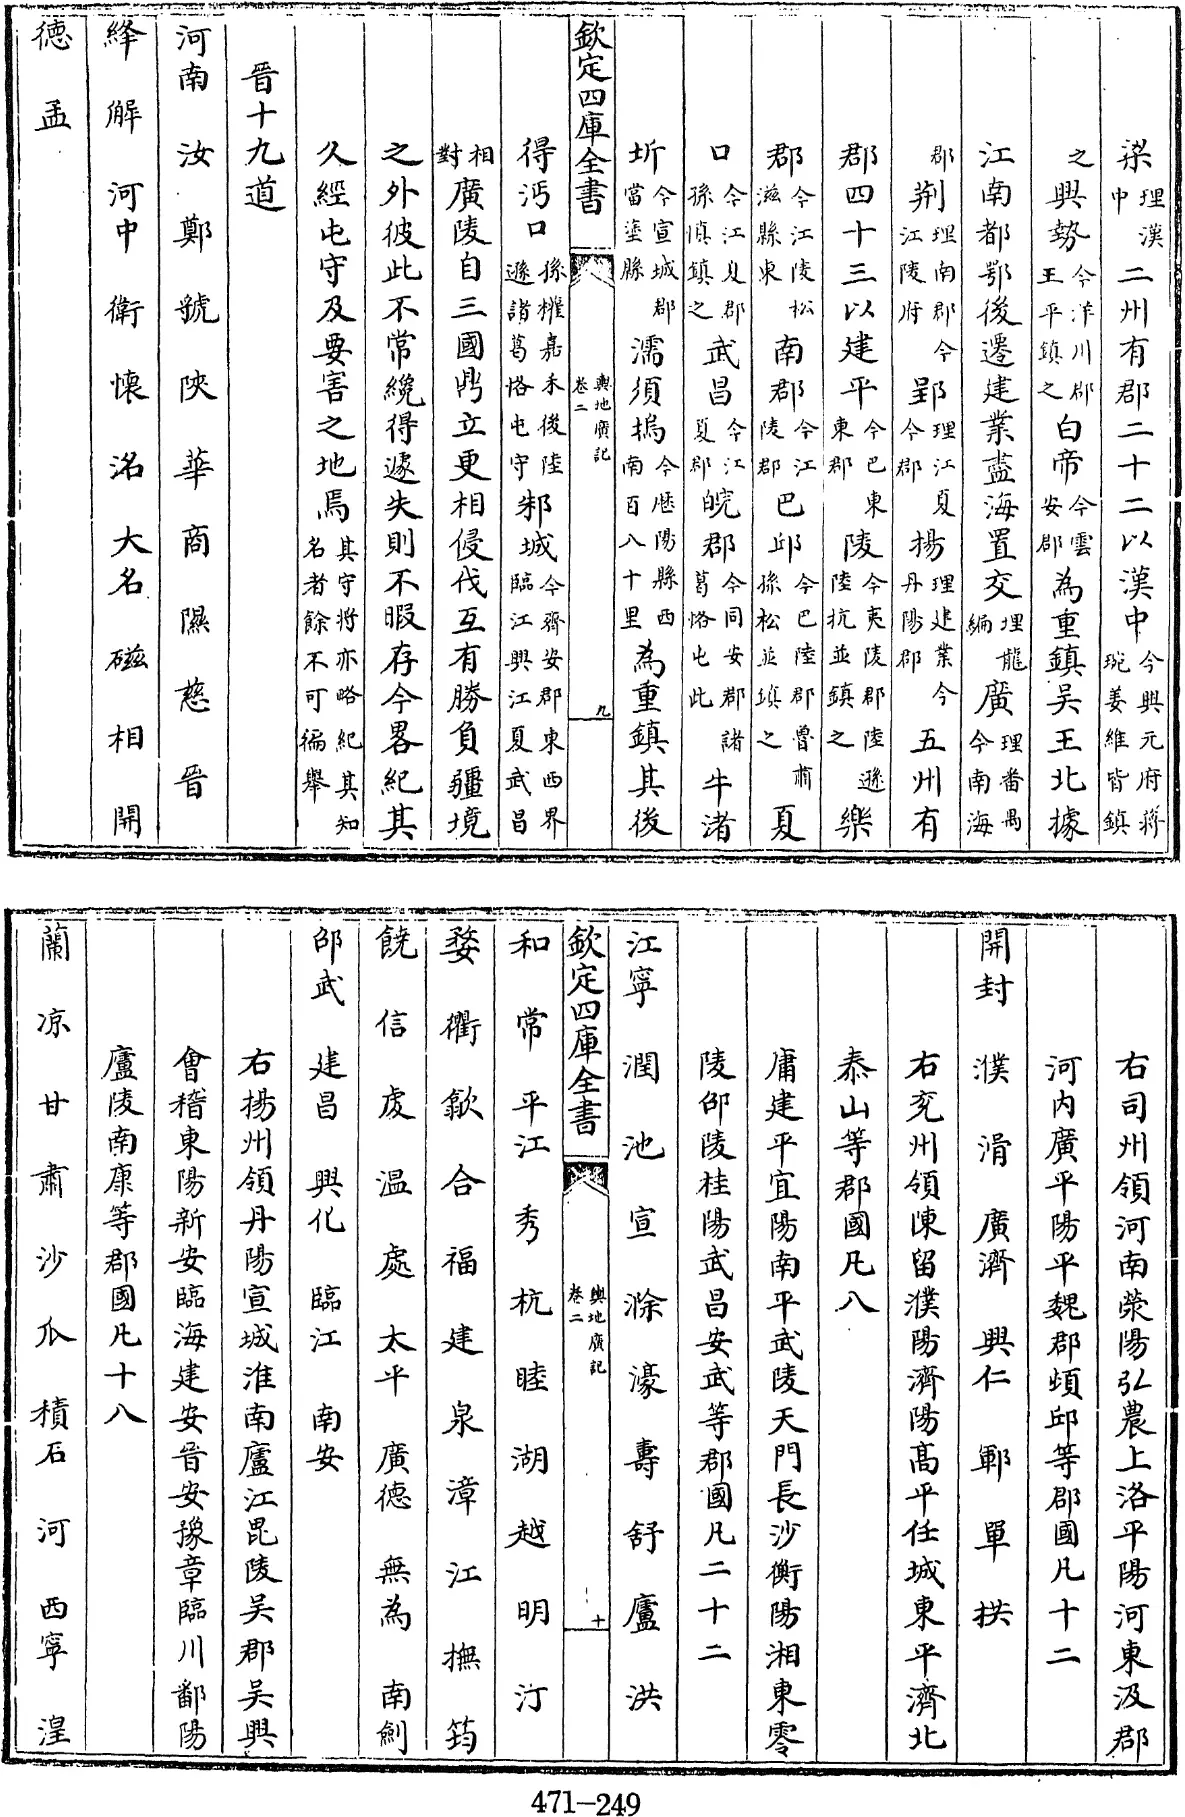 梁理漢中二州有郡二十二以漢中今興元府蔣琬姜維皆鎮
之興勢今洋川郡王平鎮之白帝今雲安郡為重鎮吴王北據
江南都鄂後遷建業盡海置交理龍編廣理番禺今南海
郡荆理南郡今江陵府郢理江夏今郡揚理建業今丹陽郡五州有
郡四十三以建平今巴東郡陵今夷陵郡陸遜陸抗並鎮之樂
郡今江陵松滋縣東南郡今江陵郡巴邱今巴陵郡魯肅孫松並鎮之夏
口今江夏郡孫慎鎮之武昌今江夏郡皖郡今同安郡諸葛恪屯此牛渚
圻今宣城郡當塗縣濡須塢今歴陽縣西南百八十里為重鎮其後
欽定四庫全書 輿地廣記 卷二 九
得沔口孫權嘉禾後陸遜諸葛恪屯守邾城今齊安郡東西界臨江興江夏武昌
相對廣陵自三國鼎立更相侵伐互有勝負疆境
之外彼此不常纔得遽失則不暇存今畧紀其
久經屯守及要害之地焉其守將亦略紀其知名者餘不可徧舉
晉十九道
河南 汝 鄭 虢 陝 華 商 隰 慈 晉
絳 解 河中 衛 懷 洺 大名 磁 相 開
德 孟
右司州領河南滎陽弘農上洛平陽河東汲郡
河内廣平陽平魏郡頓邱等郡國凡十二
開封 濮 滑 廣濟 興仁 鄆 單 拱
右兖州領陳留濮陽濟陽高平任城東平濟北
泰山等郡國凡八
庸建平宜陽南平武陵天門長沙衡陽湘東零
陵邵陵桂陽武昌安武等郡國凡二十二
江寧 潤 池 宣 滁 濠 壽 舒 廬 洪
欽定四庫全書 輿地廣記 卷二 十
和 常 平江 秀 杭 睦 湖 越 明 汀
婺 衢 歙 合 福 建 泉 漳 江 撫 筠
饒 信 䖍 温 處 太平 廣德 無為 南劍
邵武 建昌 興化 臨江 南安
右揚州領丹陽宣城淮南廬江毘陵吴郡吴興
會稽東陽新安臨海建安晉安豫章臨川鄱陽
廬陵南康等郡國凡十八
蘭 凉 甘 肅 沙 瓜 積石 河 西寧 湟
471-249